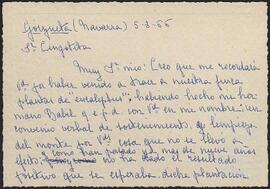 Gorzueta (Navarra) 5-3-66
Sr Lingotita
Muy Sr mio: Creo que me recordará
Vd ya haber venido a traer a nuestra finca
plantas de eucaliptus; habiendo hecho mi her-
mano Babil q.e.p.d con Vd en mi nombre, un
convenio verbal de sostenimiento y limpieza
del monte por Vds cosa que no se llevó a
efecto; como han pasado ya mas de nueve años
no ha dado el resultado
positivo que se esperaba dicha plantación